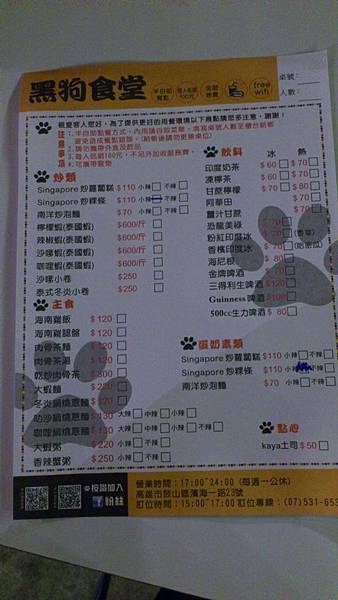 黑狗食堂
半自助
點餐
每人低消
100元
free
wifi
桌號：
人數：
親愛客人您好，為了提供更好的用餐環境以下幾點請您多注意，謝謝！
注意事項
3. 每人低消100元，不另外加收服務費。
4. 可攜帶寵物
炒類
Singapore炒蘿蔔糕 $110 小辣 不辣
Singapore炒粿條 $110 小辣 不辣
南洋炒泡麵 $70 小辣 不辣
檸檬蝦(泰國蝦) $600/斤
辣椒蝦(泰國蝦) $600/斤
沙嗲蝦(泰國蝦) $600/斤
咖哩蝦(泰國蝦) $600/斤
沙嗲小卷 $250
泰式冬炎小卷 $250
主食
海南雞飯 $120
海南雞腿盤 $180
肉骨茶麵
肉骨茶湯 $120
乾炒肉骨茶 $300
大蝦麵 $220
冬炎鍋燒意麵 $130 大辣 中辣 小辣
叻沙鍋燒意麵 $130 大辣 中辣 小辣
咖哩鍋燒意麵 $130 大辣 中辣 小辣
大蝦粥 $220 小辣 不辣
香辣蟹粥 $250 小辣 不辣
飲料 冰 熱
印度奶茶 $60 $70
凍檸茶 $60
甘蔗檸檬 $70 $80
阿華田 $70
薑汁甘蔗
恐龍美綠 $70
粉紅印度冰 $70
香檳印度冰 $70 (哈密瓜)
海尼根 $80
金牌啤酒
三得利生啤酒 $120
Guinness啤酒
500cc生力啤酒 $80
蛋奶素類
Singapore炒蘿蔔糕 $110 小辣 不辣
Singapore炒粿條 $110 小辣
南洋炒泡麵 $70 小辣 不辣
點心
kaya土司 $50
按讚加入
f 粉絲
營業時間：17:00~24:00 (每週一公休)
高雄市鼓山區濱海一路23號
訂位時間：15:00~17:00 訂位專線：(07)531-653